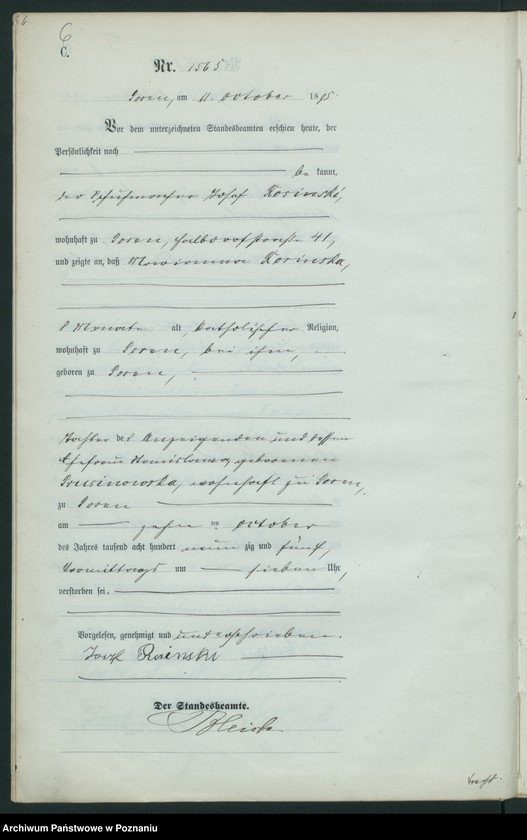 6
C.
Nr. 1565
Posen, am 11. October 1895
Vor dem unterzeichneten Standesbeamten erschien heute, der
Persönlichkeit nach
be kannt,
der Schuhmacher Josef Rosinski,
wohnhaft zu Posen, Halbdorfstraße 41,
und zeigte an, daß Marianna Rosinska,
Monate alt, katholischer Religion,
wohnhaft zu Posen, bei ihm,
geboren zu Posen,
Tochter des Anzeigenden und dessen
Ehefrau Stanislawa, geborenen
wohnhaft zu Posen,
zu Posen
am zehn ten October
des Jahres tausend acht hundert neun zig und fünf,
Vormittags um sieben Uhr,
verstorben sei.
Vorgelesen, genehmigt und unterschrieben.
Józef Rosinski
Der Standesbeamte.
Archiwum Państwowe w Poznaniu